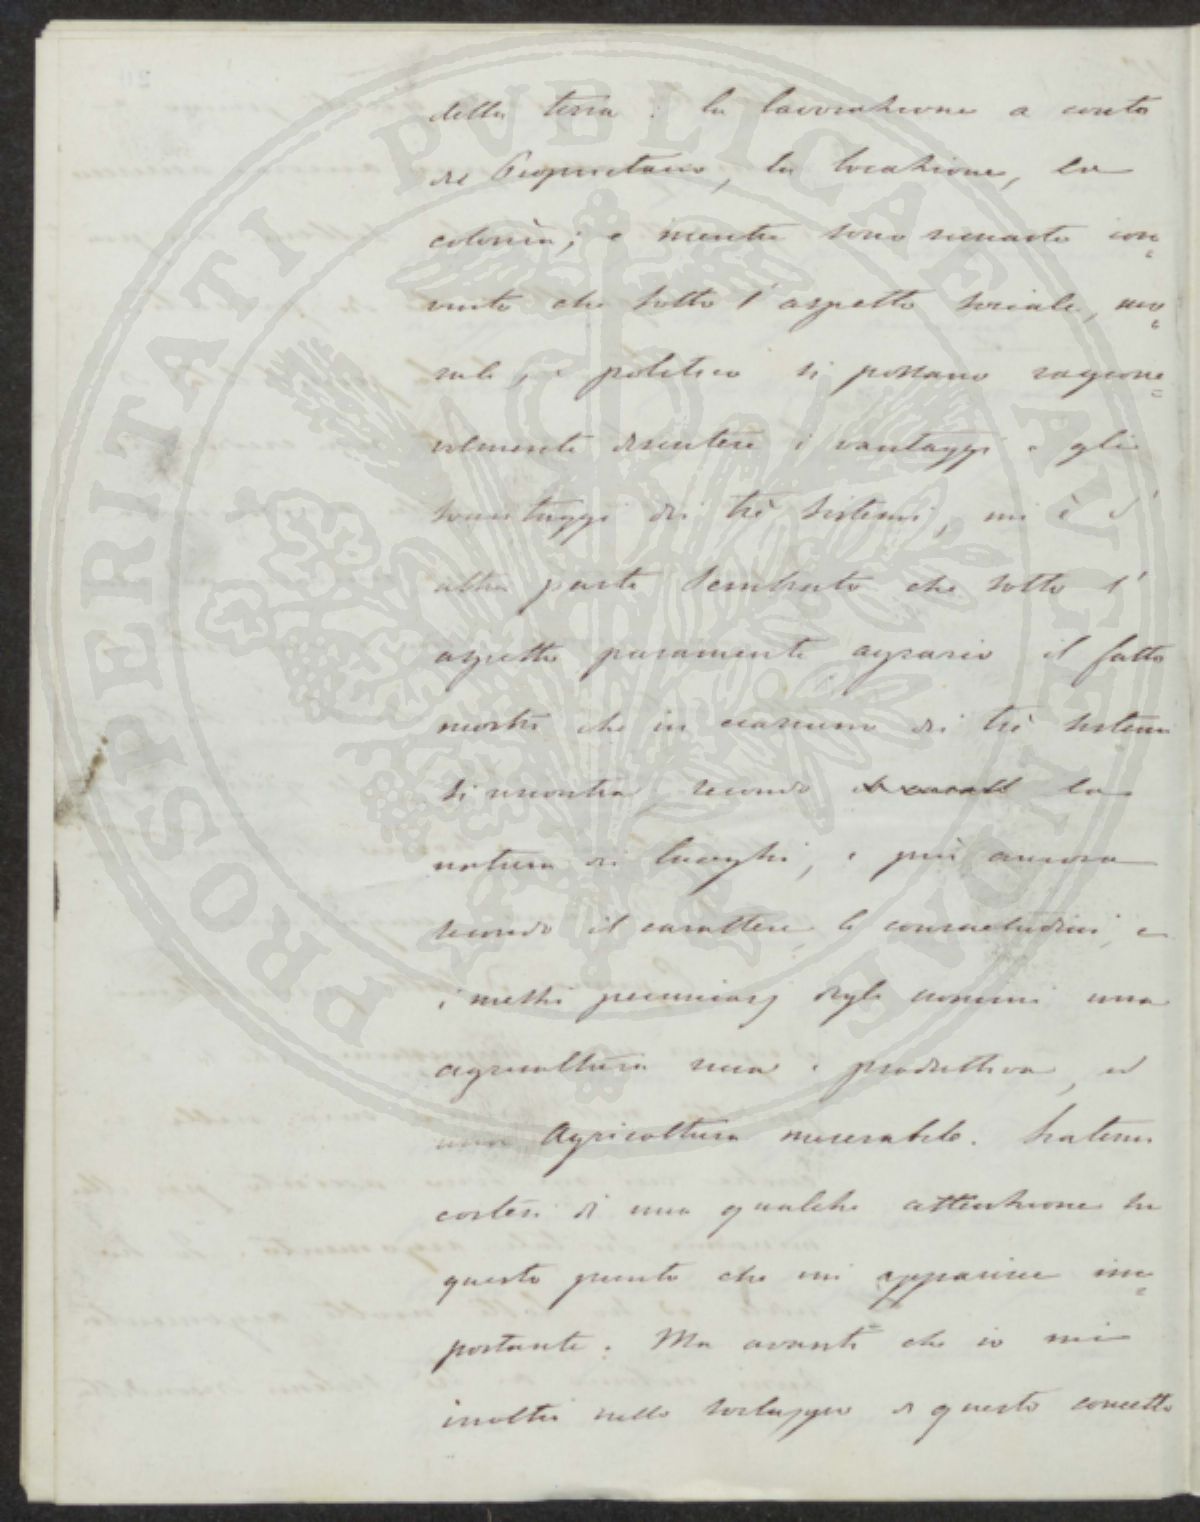 della terra: la lavorazione a conto
del Proprietario, la locazione, la
colonìa; e mentre sono rimasto con=
vinto che sotto l'aspetto sociale, mo=
rale, e politico si possano ragione=
volmente discutere i vantaggi e gli
svantaggi dei trè sistemi, mi è d'
altra parte sembrato che sotto l'
aspetto puramente agrario il fatto
mostri che in ciascuno dei trè sistemi
si riscontra, secondo la
natura dei luoghi, e più ancora
secondo il carattere, le consuetudini, e
i mezzi pecuniarj degli uomini una
agricoltura ricca e produttiva, ed
una Agricoltura miserabile. Siatemi
cortesi di una qualche attenzione su
questo punto che mi apparisce im=
portante. Ma avanti che io mi
inoltri nello sviluppo di questo concetto
PROSPERITATI PUBLICAE AUGENDAE